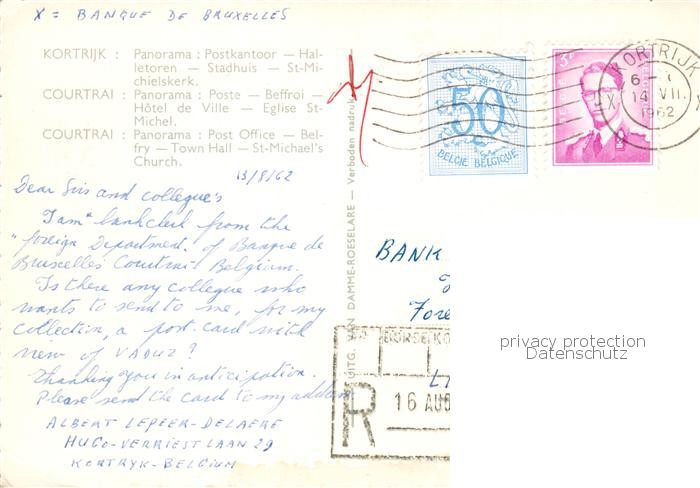 X = BANQUE DE BRUXELLES
KORTRIJK : Panorama : Postkantoor — Hal-
letoren — Stadhuis — St-Mi-
chielskerk.
COURTRAI : Panorama : Poste — Beffroi —
Hôtel de Ville — Eglise St-
Michel.
COURTRAI : Panorama : Post Office — Bel-
fry — Town Hall — St-Michael's
Church.
13/8/62
Dear Sirs and collegue's
I am a bankclerk from the
"foreign Department" of Banque de
Bruxelles Courtrai Belgium.
Is there any collegue who
wants to send to me, for my
collection, a post-card with
view of VADUZ ?
Thanking you in anticipation.
Please send the card to my address
ALBERT LEPEER-DELAERE
HUGO-VERRIESTLAAN 29
KORTRYK-BELGIUM
UITG. VAN DAMME-ROESELARE — Verboden nadruk
50
BELGIE BELGIQUE
3F
KORTRIJK
14 VII.
1962
BANK
Fore
R
16 AUG
privacy protection
Datenschutz